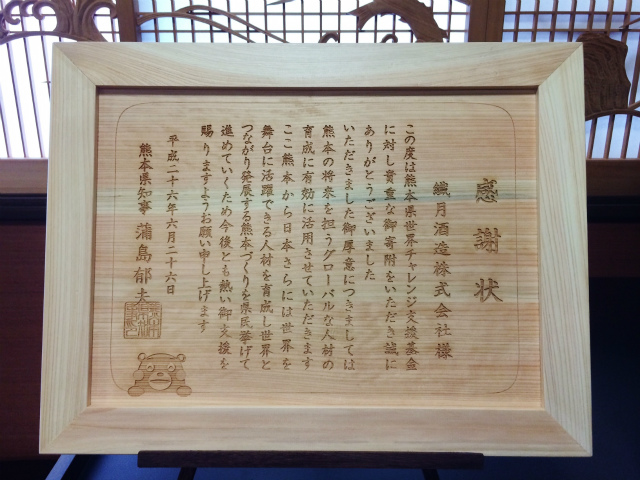 感謝状
繊月酒造株式会社様
この度は熊本県世界チャレンジ支援基金
に対し貴重な御寄附をいただき誠に
ありがとうございました
いただきました御厚意につきましては
熊本の将来を担うグローバルな人材の
育成に有効に活用させていただきます
ここ熊本から日本さらには世界を
舞台に活躍できる人材を育成し世界と
つながり発展する熊本づくりを県民挙げて
進めていくため今後とも熱い御支援を
賜りますようお願い申し上げます
平成二十六年六月二十六日
熊本県知事 蒲島郁夫